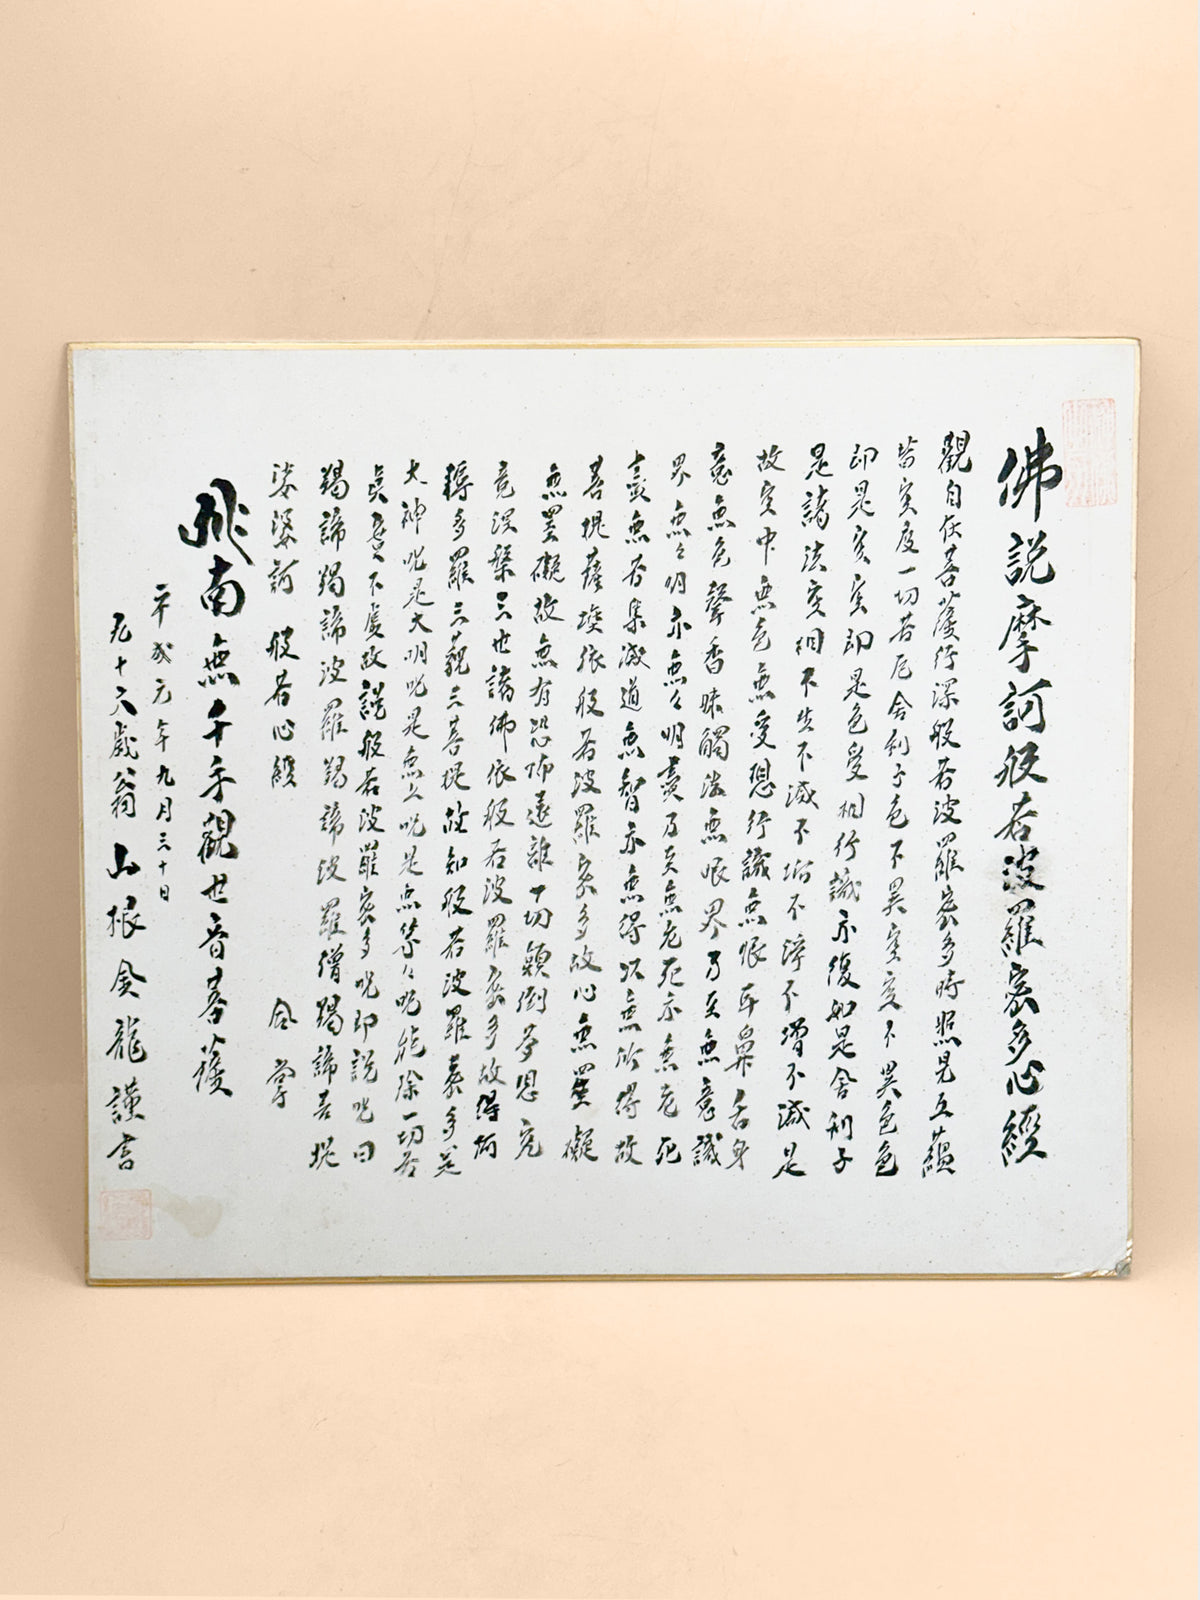 佛説摩訶般若波羅蜜多心經
觀自在菩薩行深般若波羅蜜多時照見五蘊
皆空度一切苦厄舍利子色不異空空不異色色
即是空空即是色受想行識亦復如是舍利子
是諸法空相不生不滅不垢不淨不增不減是
故空中無色無受想行識無眼耳鼻舌身
意無色聲香味觸法無眼界乃至無意識
界無々明亦無々明盡乃至無老死亦無老死
盡無苦集滅道無智亦無得以無所得故
菩提薩埵依般若波羅蜜多故心無罣礙
無罣礙故無有恐怖遠離一切顛倒夢想究
竟涅槃三世諸佛依般若波羅蜜多故得阿
耨多羅三藐三菩提故知般若波羅蜜多是
大神呪是大明呪是無上呪是無等々呪能除一切苦
真實不虚故説般若波羅蜜多呪即説呪曰
羯諦羯諦波羅羯諦波羅僧羯諦菩提
娑婆訶 般若心經 合掌
南無千手觀世音菩薩
平成元年九月三十日
九十六歳翁山根金龍謹書